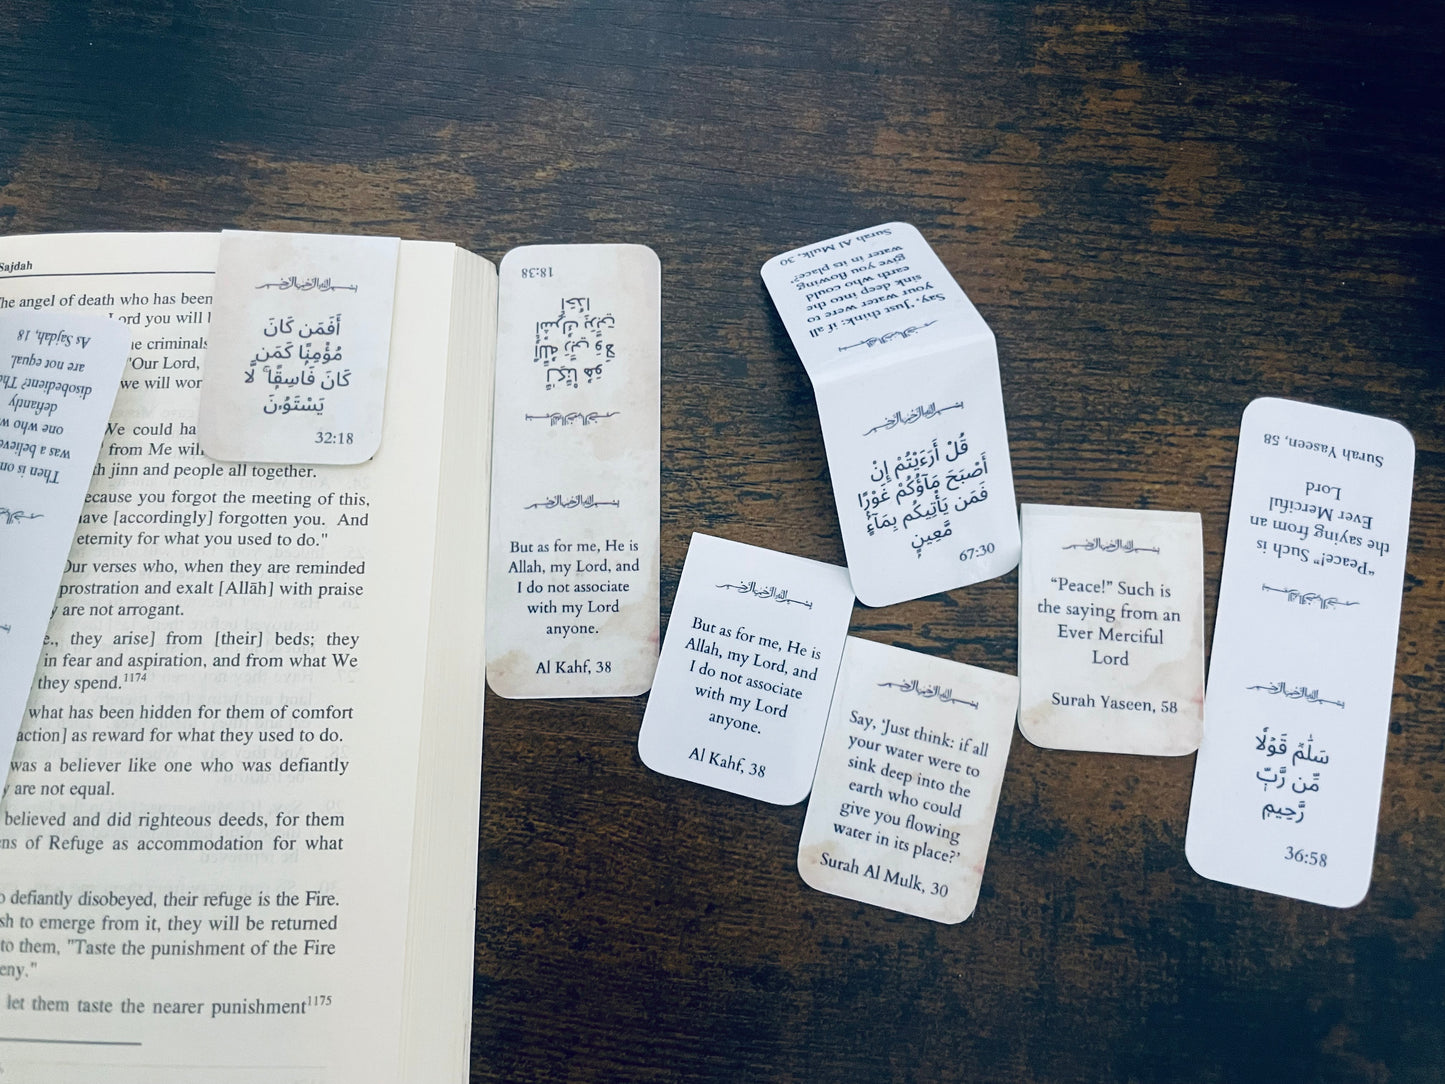 Sajdah
The angel of death who has been
Lord you will
criminals
'Our Lord,
we will wor
We could ha
from Me will
jinn and people all together.
because you forgot the meeting of this,
have [accordingly] forgotten you. And
eternity for what you used to do."
Our verses who, when they are reminded
prostration and exalt [Allāh] with praise
are not arrogant.
they arise] from [their] beds; they
in fear and aspiration, and from what We
they spend.1174
what has been hidden for them of comfort
action] as reward for what they used to do.
was a believer like one who was defiantly
are not equal.
believed and did righteous deeds, for them
of Refuge as accommodation for what
defiantly disobeyed, their refuge is the Fire.
to emerge from it, they will be returned
to them, "Taste the punishment of the Fire
let them taste the nearer punishment1175
Then is on
was a believe
one who w
defiantly
disobedient? The
are not equal.
As Sajdah, 18
بسم الله الرحمن الرحيم
أَفَمَن كَانَ
مُؤْمِنًا كَمَن
كَانَ فَاسِقًا ۚ لَّا
يَسْتَوُۥنَ
32:18
بسم الله الرحمن الرحيم
لَّٰكِنَّا۠ هُوَ
ٱللَّهُ رَبِّى وَلَآ
أُشْرِكُ بِرَبِّىٓ
أَحَدًا
18:38
بسم الله الرحمن الرحيم
But as for me, He is
Allah, my Lord, and
I do not associate
with my Lord
anyone.
Al Kahf, 38
بسم الله الرحمن الرحيم
But as for me, He is
Allah, my Lord, and
I do not associate
with my Lord
anyone.
Al Kahf, 38
بسم الله الرحمن الرحيم
Say, 'Just think: if all
your water were to
sink deep into the
earth who could
give you flowing
water in its place?'
Surah Al Mulk, 30
بسم الله الرحمن الرحيم
قُلْ أَرَءَيْتُمْ إِنْ
أَصْبَحَ مَآؤُكُمْ غَوْرًا
فَمَن يَأْتِيكُم بِمَآءٍ
مَّعِينٍۭ
67:30
بسم الله الرحمن الرحيم
Say, 'Just think: if all
your water were to
sink deep into the
earth who could
give you flowing
water in its place?'
Surah Al Mulk, 30
بسم الله الرحمن الرحيم
“Peace!” Such is
the saying from an
Ever Merciful
Lord
Surah Yaseen, 58
بسم الله الرحمن الرحيم
“Peace!” Such is
the saying from an
Ever Merciful
Lord
Surah Yaseen, 58
بسم الله الرحمن الرحيم
سَلَٰمٌ قَوْلًا
مِّن رَّبٍّ
رَّحِيمٍ
36:58